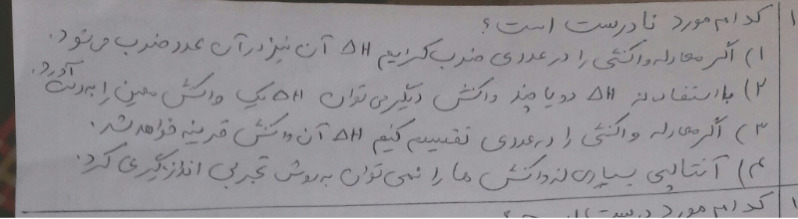 ۱ کدام مورد نادرست است؟
۱) اگر معادله واکنشی را در عددی ضرب کنیم ΔH آن نیز در آن عدد ضرب می‌شود.
۲) با استفاده از ΔH دو یا چند واکنش دیگر می‌توان ΔH یک واکنش معین را به دست آورد.
۳) اگر معادله واکنشی را در عددی تقسیم کنیم ΔH آن واکنش قرینه خواهد شد.
۴) آنتالپی بسیاری از واکنش ها را نمی‌توان به روش تجربی اندازه‌گیری کرد.
۱ کدام مورد درست